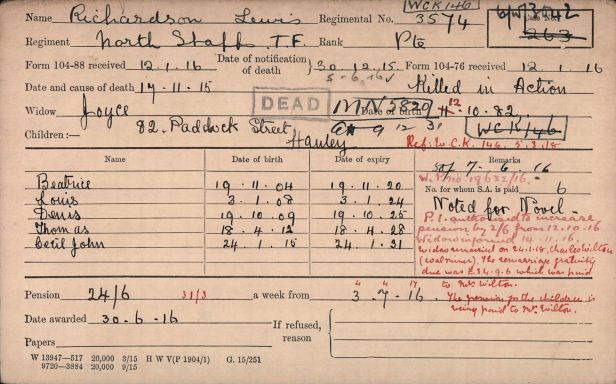 WCK146
Name Richardson Lewis Regimental No. 3574 6/W/3042
263
Regiment North Staffs T.F. Rank Pte
Form 104-88 received 12.1.16 Date of notification of death 30.12.15 Form 104-76 received 12.1.16
5-6.16 v
Date and cause of death 17-11-15 Killed in Action
DEAD
Widow Joyce MN5829 Date of birth 12.10.82.
82. Paddock Street, 9 12 31 WCK146
Hanley Ref: W.C.K. 146. 5.3.18
Children:—
Name Date of birth Date of expiry Remarks
7-6.16
W.P. no. 19632/16.
Beatrice 19.11.04 19.11.20 No. for whom S.A. is paid 6
Louis 3.1.08 3.1.24 Noted for Novel.
Denis 19.10.09 19.10.25 P.I. authorised to increase
Thomas 18.4.12 18.4.28 pension by 2/6 from 12.10.16
Cecil John 24.1.15 24.1.31 Widow informed 14.11.16.
Widow remarried on 24.1.18, Charles Wilton
(coalminer). The remarriage gratuity
due was £34.9.6 which was paid
to Mrs Wilton.
Pension 24/6 31/3 a week from 3-7-16
4 4 17
The pension for the children is
being paid to Mrs. Wilton.
Date awarded 30-6-16
If refused, reason
Papers
W 13947—517 20,000 3/15 H W V(P 1904/1) G. 15/251
9720—3884 20,000 9/15